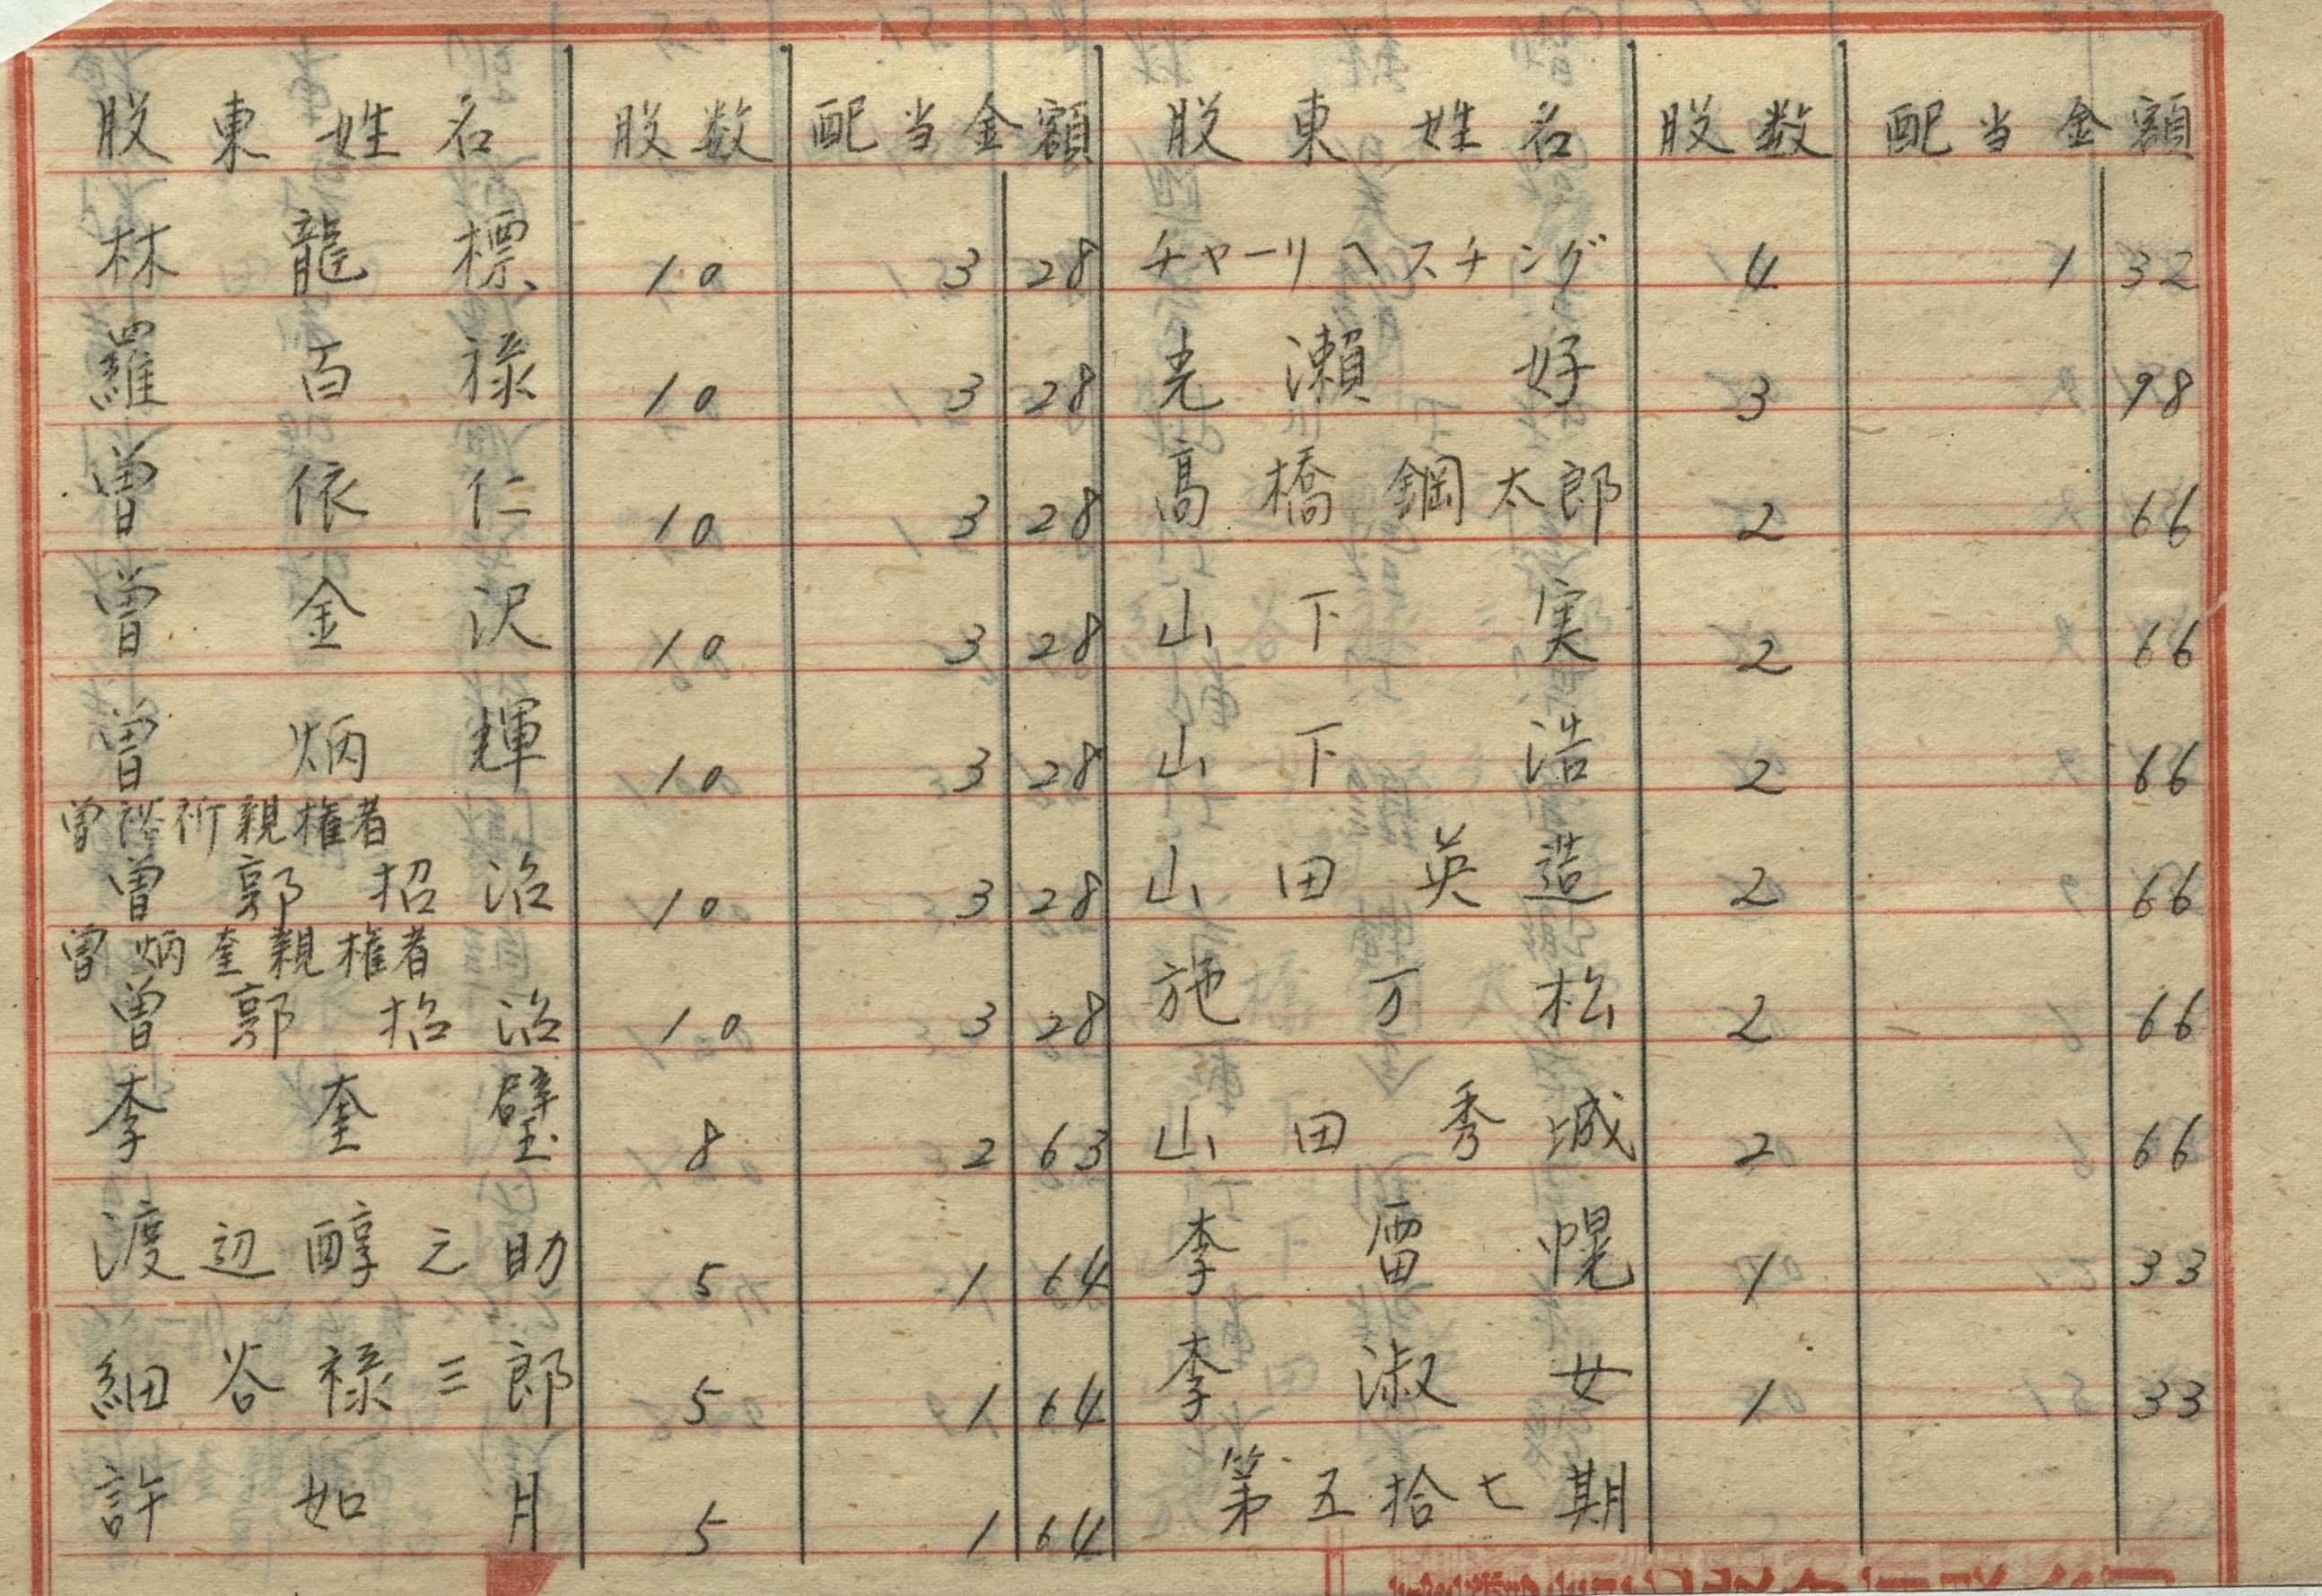 股東姓名 股数 配当金額
林龍標 10 3 28
羅百禄 10 3 28
曽依仁 10 3 28
曽金沢 10 3 28
曽炳輝 10 3 28
親権者
曽郭招治 10 3 28
曽炳奎親権者
曽郭招治 10 3 28
李奎璧 8 2 63
渡辺醇之助 5 1 64
細谷禄三郎 5 1 64
許如月 5 1 64
股東姓名 股数 配当金額
チャーリヘスチング 4 1 32
瀬好 3 98
高橋鋼太郎 2 66
山下実 2 66
山下浩 2 66
山田英造 2 66
施万松 2 66
山田秀城 2 66
李雷幌 1 33
李淑女 1 33
第五拾七期